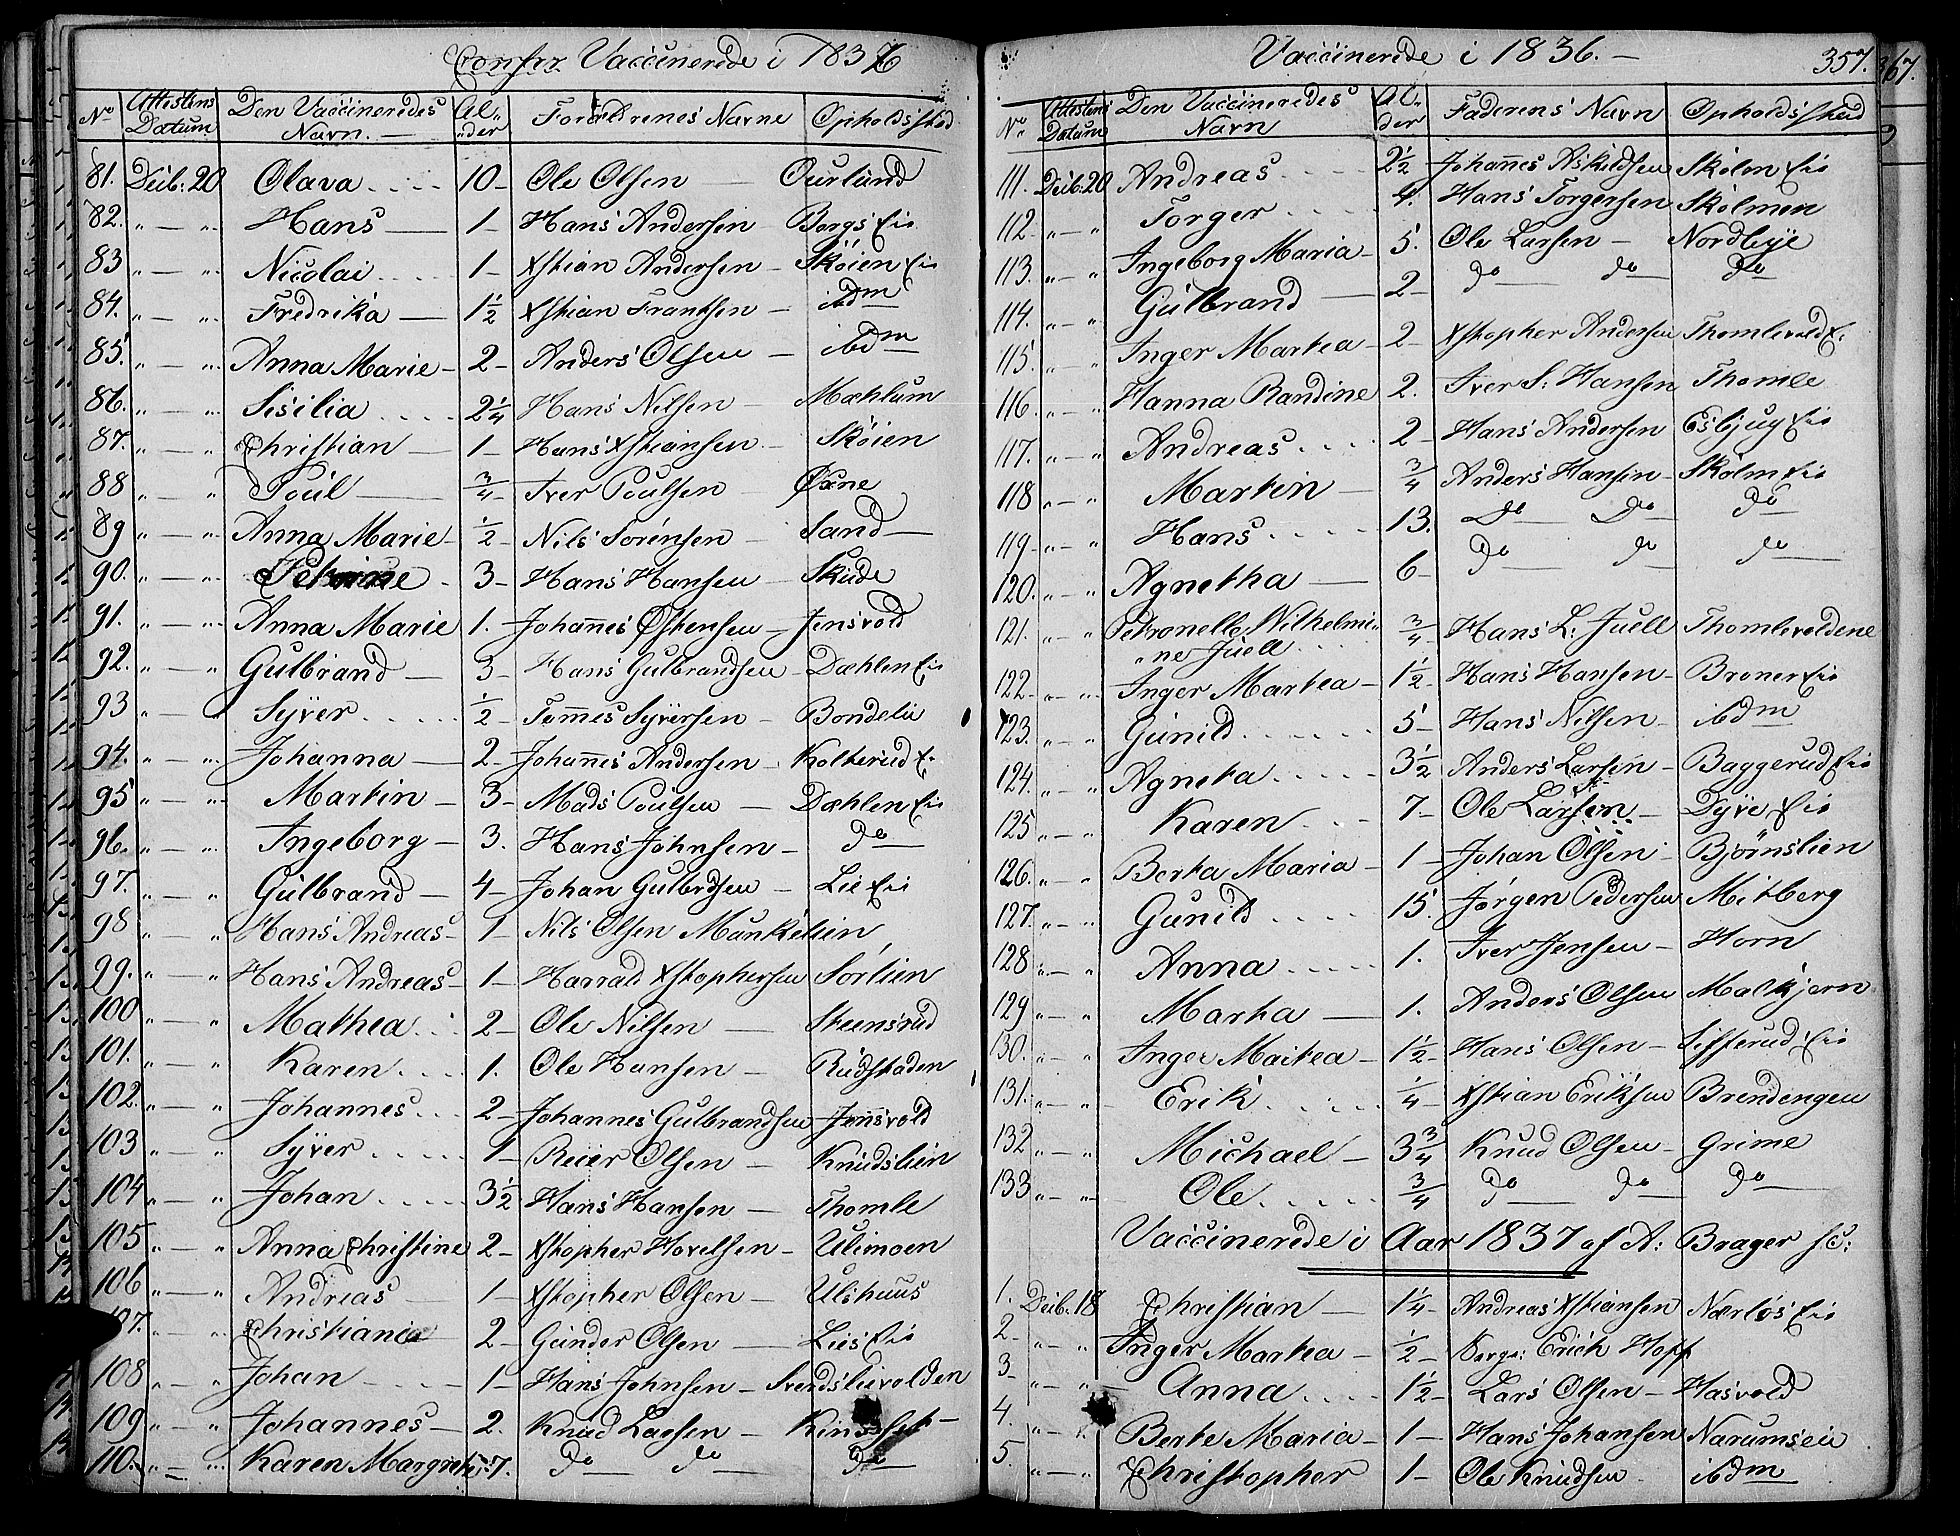 Vaccinerede i 1836
No Attestens Datum Den Vaccineredes Navn. Alder Forældrenes Navne Opholdsstæd
81. Decb. 20 Olava 10 Ole Olsen Ourlund
82. " — " Hans 1 Hans Andersen Bergs Eie
83 " — " Nicolai 1 Xstian Andersen Skøien Eie
84. " — " Fredrika 1½ Xstian Frantsen ibdm
85. " — " Anna Marie 2 Anders Olsen ibdm
86. " — " Sisilia 2¼ Hans Nilsen Mæhlum
87. " — " Christian 1 Hans Xstiansen Skøien
88 " — " Poul ¾ Iver Poulsen Øxne
89 " — " Anna Marie ½ Nils Sørensen Sand
90. " — " Petrine 3 Hans Hansen Skude
91. " — " Anna Marie 1. Johannes Østensen Jensvold
92. " — " Gulbrand 3 Hans Gulbrandsen Dæhlen Eie
93 " — " Syver ½ Tommes Syversen Bondelie
94. " — " Johanna 2 Johannes Andersen Kolterud E.
95 " — " Martin 3 Mads Poulsen Dæhlen Eie
96. " — " Ingeborg 3. Hans Johnsen do
97. " — " Gulbrand 4 Johan Gulbrdsen Lie Eie
98 " — " Hans Andreas 1 Nils Olsen Munkelien
99. " — " Hans Andreas 1 Harrald Xstophersen Sørlien
100 " — " Mathea 2 Ole Nilsen Steensrud
101. " — " Karen 1. Ole Hansen Rudstaden
102. " — " Johannes 2 Johannes Gulbrandsen Jensvold
103 " — " Syver 1 Reier Olsen Knudslien
104 " — " Johan 3½ Hans Hansen Thomle
105 " — " Anna Christine 2 Xstopher Hovelsen Ulimoen
106 " — " Andreas 1 Xstopher Olsen Ulshuus
107. " — " Christiania 2 Gunder Olsen Lies Eie
108 " — " Johan 1 Hans Johnsen Svendslievolden
109 " — " Johannes 2. Knud Larsen
110. " — " Karen Margrete 7. do do do
Vaccinerede i 1836. 357. 367.
No Attestens Datum Den Vaccineredes Navn Alder Faderens Navn Opholdsstæd
111. Decb. 20 Andreas 2½ Johannes Askildsen Skølen Eie
112. " — " Torger 4. Hans Torgersen Skølmen
113. " — " Ingeborg Maria 5. Ole Larsen Nordbye
114. " — " Gulbrand 2 do do do
115. " — " Inger Martea 2 Xstopher Andersen Thomlevold E.
116. " — " Hanna Randine 2. Iver S: Hansen Thomle
117. " — " Andreas 2 Hans Andersen Esbjug Eie
118 " — " Martin ¾ Anders Hansen Skølm Eie
119. " — " Hans 13. Do Do do
120. " — " Agnetha 6 do do do
121. " — " Petronelle Wilhelmi- ¾ Hans L: Juell Thomlevoldene
"ne Juell
122. " — " Inger Martea 1½ Hans Hansen Broner Eie
123. " — " Gunild 5 Hans Nilsen ibdm
124. " — " Agneta 3½ Anders Larsen Baggerud Eie
125 " — " Karen 7 Ole Larsen Dyve Eie
126. " — " Berta Maria 1 Johan Olsen Bjørnslien
127. " — " Gunild 15. Jørgen Pedersen Mitberg
128 " — " Anna 1. Iver Jensen Horn
129 " — " Marta 1. Anders Olsen Malkjern
130. " — " Inger Martea 1½ Hans Olsen Sifferud Eie
131. " — " Erik ¼ Xstian Eriksen Brendengen
132 " — " Michael 3¾ Knud Olsen Grime
133 " — " Ole ¾ do do do
Vaccinerede i Aar 1837 af A: Brager sc:
1. Decb. 18 Christian 1¼ Andreas Xstiansen Nærløs Eie
2 " — " Inger Martea ½ Serga: Erich Hoff
3 " — " Anna 1½ Lars Olsen Hasvold
4. " — " Berte Maria 1 Hans Johansen Narumseie
5. " — " Christopher 1 Ole Knudsen ibdm